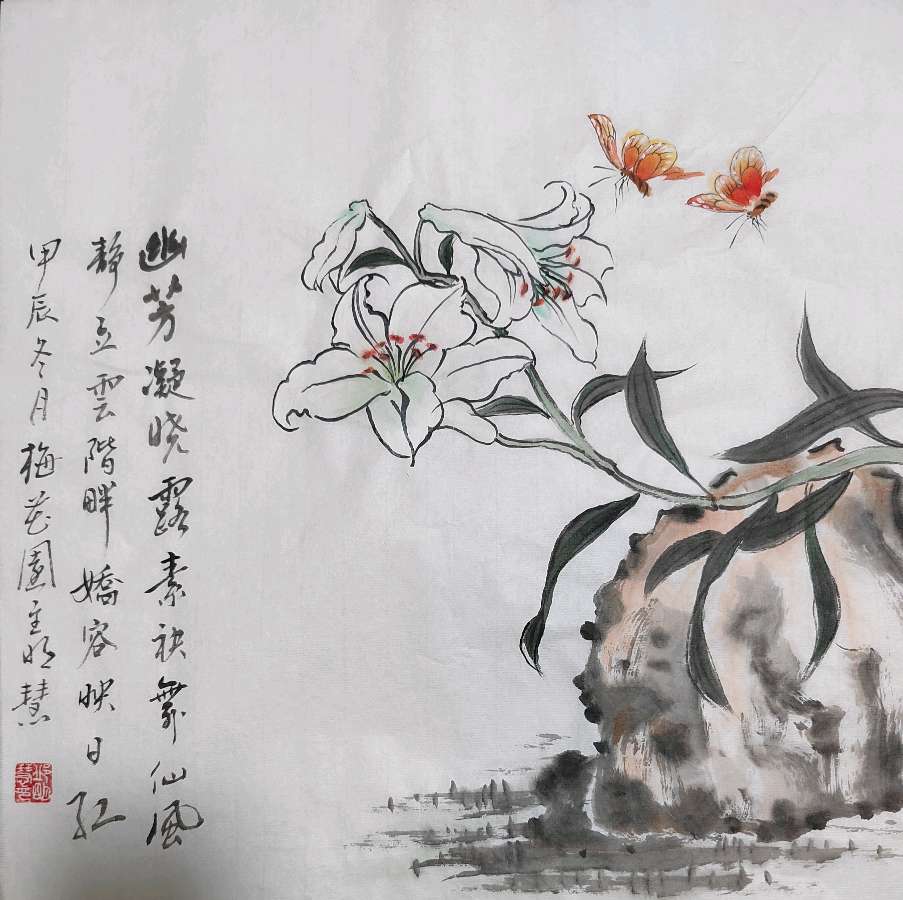 幽芳凝晓露素袂舞仙风
静立雲階畔嬌容映日红
甲辰冬月梅花園主明慧